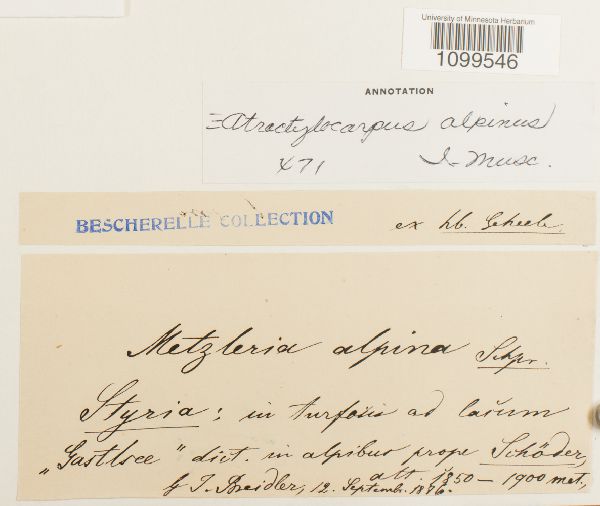 University of Minnesota Herbarium
1099546
ANNOTATION
=Atractylocarpus alpinus
I. Musc.
BESCHERELLE COLLECTION
ex hb. Geheeb.
Metzleria alpina Schpr.
Styria: in turfosis ad lacum
„Gastlsee" dict. in alpibus prope Schöder,
alt. 1850 — 1900 met.,
J. Breidler, 12. Septemb. 1876.